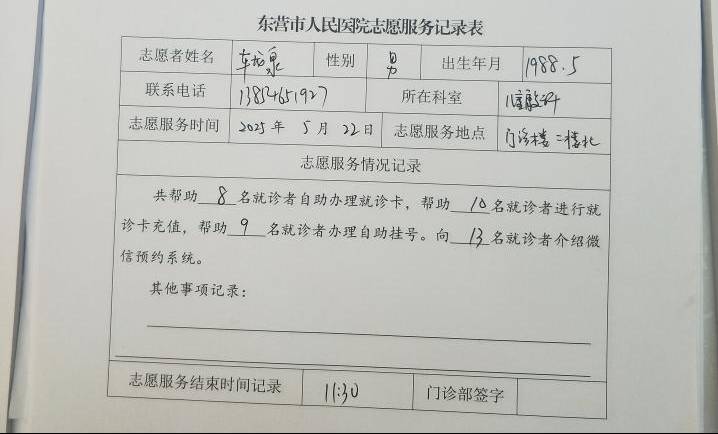 东营市人民医院志愿服务记录表
志愿者姓名 车龙泉 性别 男 出生年月 1988.5
联系电话 13854651927 所在科室
志愿服务时间 2025年 5月 22日 志愿服务地点 门诊楼二楼北
志愿服务情况记录
共帮助 8 名就诊者自助办理就诊卡，帮助 10 名就诊者进行就
诊卡充值，帮助 9 名就诊者办理自助挂号。向 13 名就诊者介绍微
信预约系统。
其他事项记录：
志愿服务结束时间记录 11:30 门诊部签字